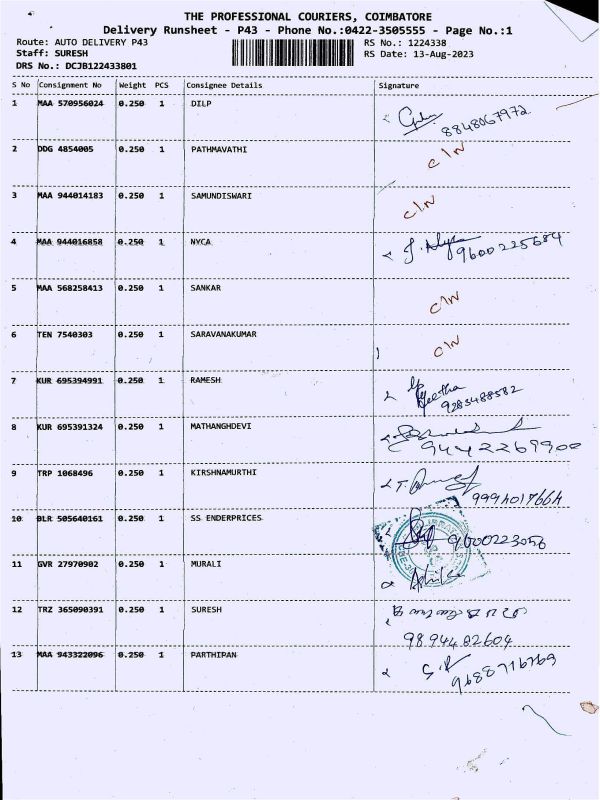 THE PROFESSIONAL COURIERS, COIMBATORE
Delivery Runsheet - P43 - Phone No.:0422-3505555 - Page No.:1
Route: AUTO DELIVERY P43 RS No.: 1224338
Staff: SURESH RS Date: 13-Aug-2023
DRS No.: DCJB122433801
S No Consignment No Weight PCS Consignee Details Signature
1 MAA 570956024 0.250 1 DILP
8848067972
2 DDG 4854005 0.250 1 PATHMAVATHI C/N
3 MAA 944014183 0.250 1 SAMUNDISWARI C/N
4 MAA 944016858 0.250 1 NYCA 9600225684
5 MAA 568258413 0.250 1 SANKAR C/N
6 TEN 7540303 0.250 1 SARAVANAKUMAR C/N
7 KUR 695394991 0.250 1 RAMESH Geetha
9283488582
8 KUR 695391324 0.250 1 MATHANGHDEVI
9442269900
9 TRP 1068496 0.250 1 KIRSHNAMURTHI
9994017664
10 BLR 505640161 0.250 1 SS ENDERPRICES 9600223056
11 GVR 27970902 0.250 1 MURALI
12 TRZ 365090391 0.250 1 SURESH
9894482604
13 MAA 943322096 0.250 1 PARTHIPAN